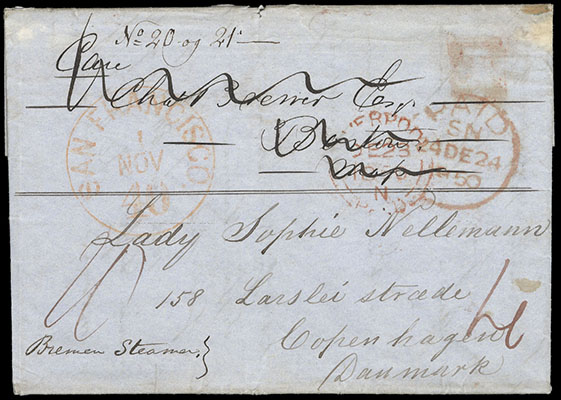 No 20 og 21
Care
Chas Esqr
Boston
Mass
SAN FRANCISCO
1
NOV
40
LIVERPOOL
DE 23
PAID
SN
24 DE 24
1850
Lady Sophie Nellemann
158 Larslei stræde
Copenhagen
Danmark
Bremen Steamer